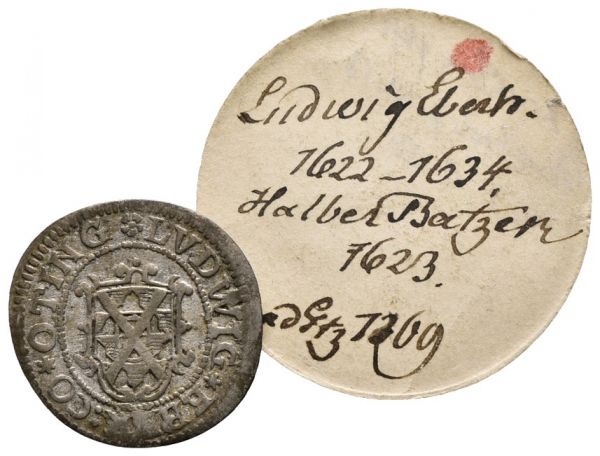 LVDWIG * EBER : CO * OTING *
Ludwig Eberh.
1622 – 1634.
Halber Batzen
1623.
1269